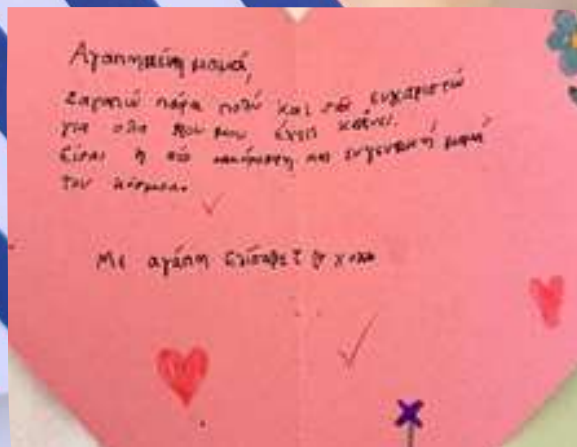 Αγαπημένη μαμά,
Σαγαπώ πάρα πολύ και σε ευχαριστώ
για ολα που μου έχεις κάνει.
Είσαι η πιο και ευγενική μαμά
του κόσμου.
Με αγάπη Ελίσαβετ